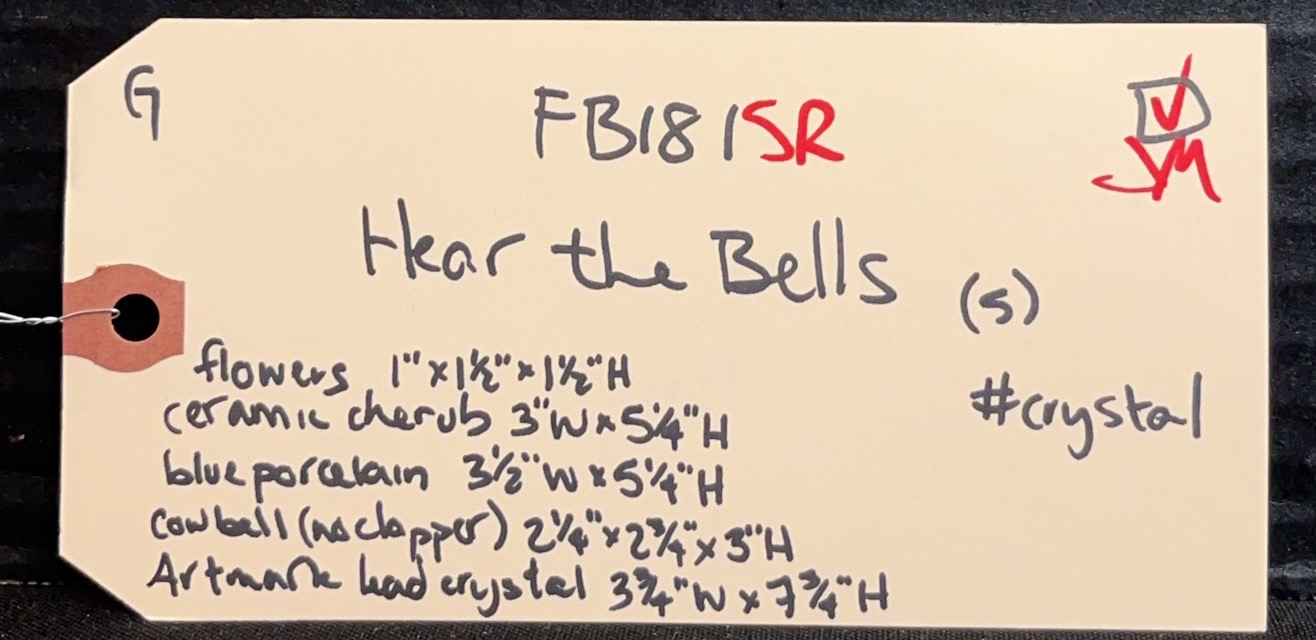 G
FB181SR
JM
Hear the Bells
(5)
flowers 1" x 1½" x 1½" H
#crystal
ceramic cherub 3" W x 5¼" H
blue porcelain 3½" W x 5¼" H
cowbell (no clapper) 2¼" x 2¾" x 3" H
Artmark lead crystal 3¾" W x 7¾" H